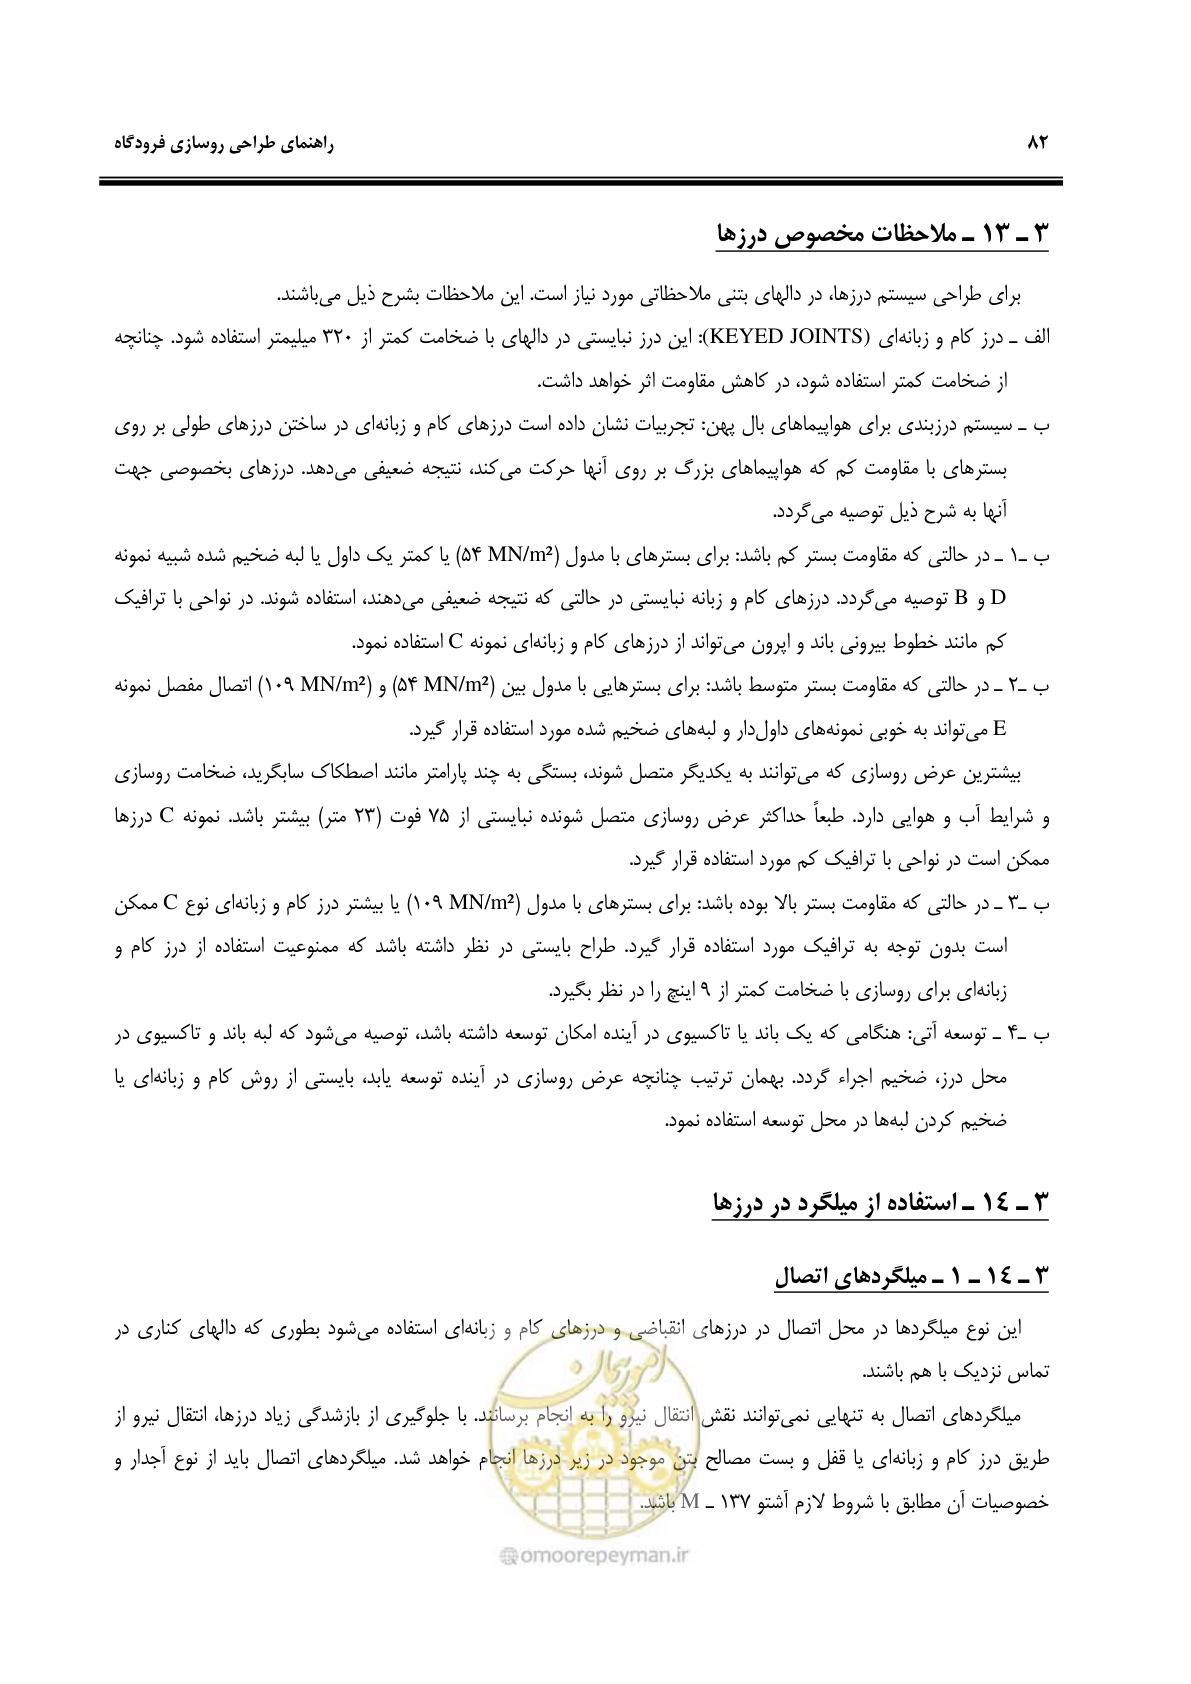 ۸۲
راهنمای طراحی روسازی فرودگاه
۳ ـ ۱۳ ـ ملاحظات مخصوص درزها
برای طراحی سیستم درزها، در دالهای بتنی ملاحظاتی مورد نیاز است. این ملاحظات بشرح ذیل می‌باشند.
الف ـ درز کام و زبانه‌ای (KEYED JOINTS): این درز نبایستی در دالهای با ضخامت کمتر از ۳۲۰ میلیمتر استفاده شود. چنانچه
از ضخامت کمتر استفاده شود، در کاهش مقاومت اثر خواهد داشت.
ب ـ سیستم درزبندی برای هواپیماهای بال پهن: تجربیات نشان داده است درزهای کام و زبانه‌ای در ساختن درزهای طولی بر روی
بسترهای با مقاومت کم که هواپیماهای بزرگ بر روی آنها حرکت می‌کند، نتیجه ضعیفی می‌دهد. درزهای بخصوصی جهت
آنها به شرح ذیل توصیه می‌گردد.
ب ـ۱ ـ در حالتی که مقاومت بستر کم باشد: برای بسترهای با مدول (۵۴ MN/m²) یا کمتر یک داول یا لبه ضخیم شده شبیه نمونه
D و B توصیه می‌گردد. درزهای کام و زبانه نبایستی در حالتی که نتیجه ضعیفی می‌دهند، استفاده شوند. در نواحی با ترافیک
کم مانند خطوط بیرونی باند و اپرون می‌تواند از درزهای کام و زبانه‌ای نمونه C استفاده نمود.
ب ـ۲ ـ در حالتی که مقاومت بستر متوسط باشد: برای بسترهایی با مدول بین (۵۴ MN/m²) و (۱۰۹ MN/m²) اتصال مفصل نمونه
E می‌تواند به خوبی نمونه‌های داول‌دار و لبه‌های ضخیم شده مورد استفاده قرار گیرد.
بیشترین عرض روسازی که می‌توانند به یکدیگر متصل شوند، بستگی به چند پارامتر مانند اصطکاک سابگرید، ضخامت روسازی
و شرایط آب و هوایی دارد. طبعاً حداکثر عرض روسازی متصل شونده نبایستی از ۷۵ فوت (۲۳ متر) بیشتر باشد. نمونه C درزها
ممکن است در نواحی با ترافیک کم مورد استفاده قرار گیرد.
ب ـ۳ ـ در حالتی که مقاومت بستر بالا بوده باشد: برای بسترهای با مدول (۱۰۹ MN/m²) یا بیشتر درز کام و زبانه‌ای نوع C ممکن
است بدون توجه به ترافیک مورد استفاده قرار گیرد. طراح بایستی در نظر داشته باشد که ممنوعیت استفاده از درز کام و
زبانه‌ای برای روسازی با ضخامت کمتر از ۹ اینچ را در نظر بگیرد.
ب ـ۴ ـ توسعه آتی: هنگامی که یک باند یا تاکسیوی در آینده امکان توسعه داشته باشد، توصیه می‌شود که لبه باند و تاکسیوی در
محل درز، ضخیم اجراء گردد. بهمان ترتیب چنانچه عرض روسازی در آینده توسعه یابد، بایستی از روش کام و زبانه‌ای یا
ضخیم کردن لبه‌ها در محل توسعه استفاده نمود.
۳ ـ ۱٤ ـ استفاده از میلگرد در درزها
۳ ـ ۱٤ ـ ۱ ـ میلگردهای اتصال
این نوع میلگردها در محل اتصال در درزهای انقباضی و درزهای کام و زبانه‌ای استفاده می‌شود بطوری که دالهای کناری در
تماس نزدیک با هم باشند.
میلگردهای اتصال به تنهایی نمی‌توانند نقش انتقال نیرو را به انجام برسانند. با جلوگیری از بازشدگی زیاد درزها، انتقال نیرو از
طریق درز کام و زبانه‌ای یا قفل و بست مصالح بتن موجود در زیر درزها انجام خواهد شد. میلگردهای اتصال باید از نوع آجدار و
خصوصیات آن مطابق با شروط لازم آشتو ۱۳۷ ـ M باشد.
امور پیمان
@omoorepeyman.ir